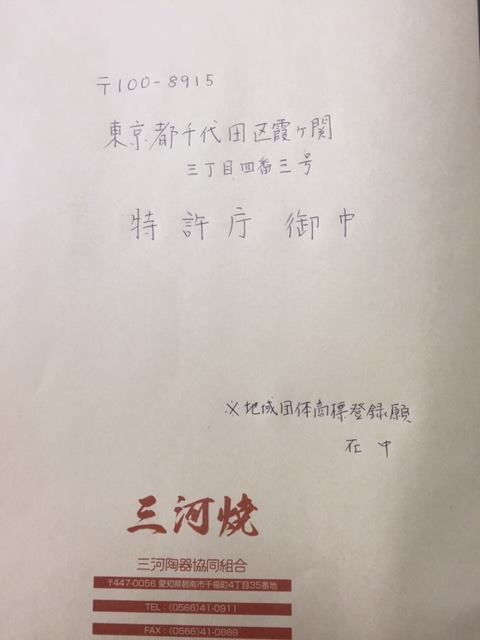 〒100-8915
東京都千代田区霞ヶ関
三丁目四番三号
特許庁 御中
※地域団体商標登録願
在中
三河焼
三河陶器協同組合
〒447-0056 愛知県碧南市千福町4丁目35番地
TEL：(0566)41-0911
FAX：(0566)41-0668